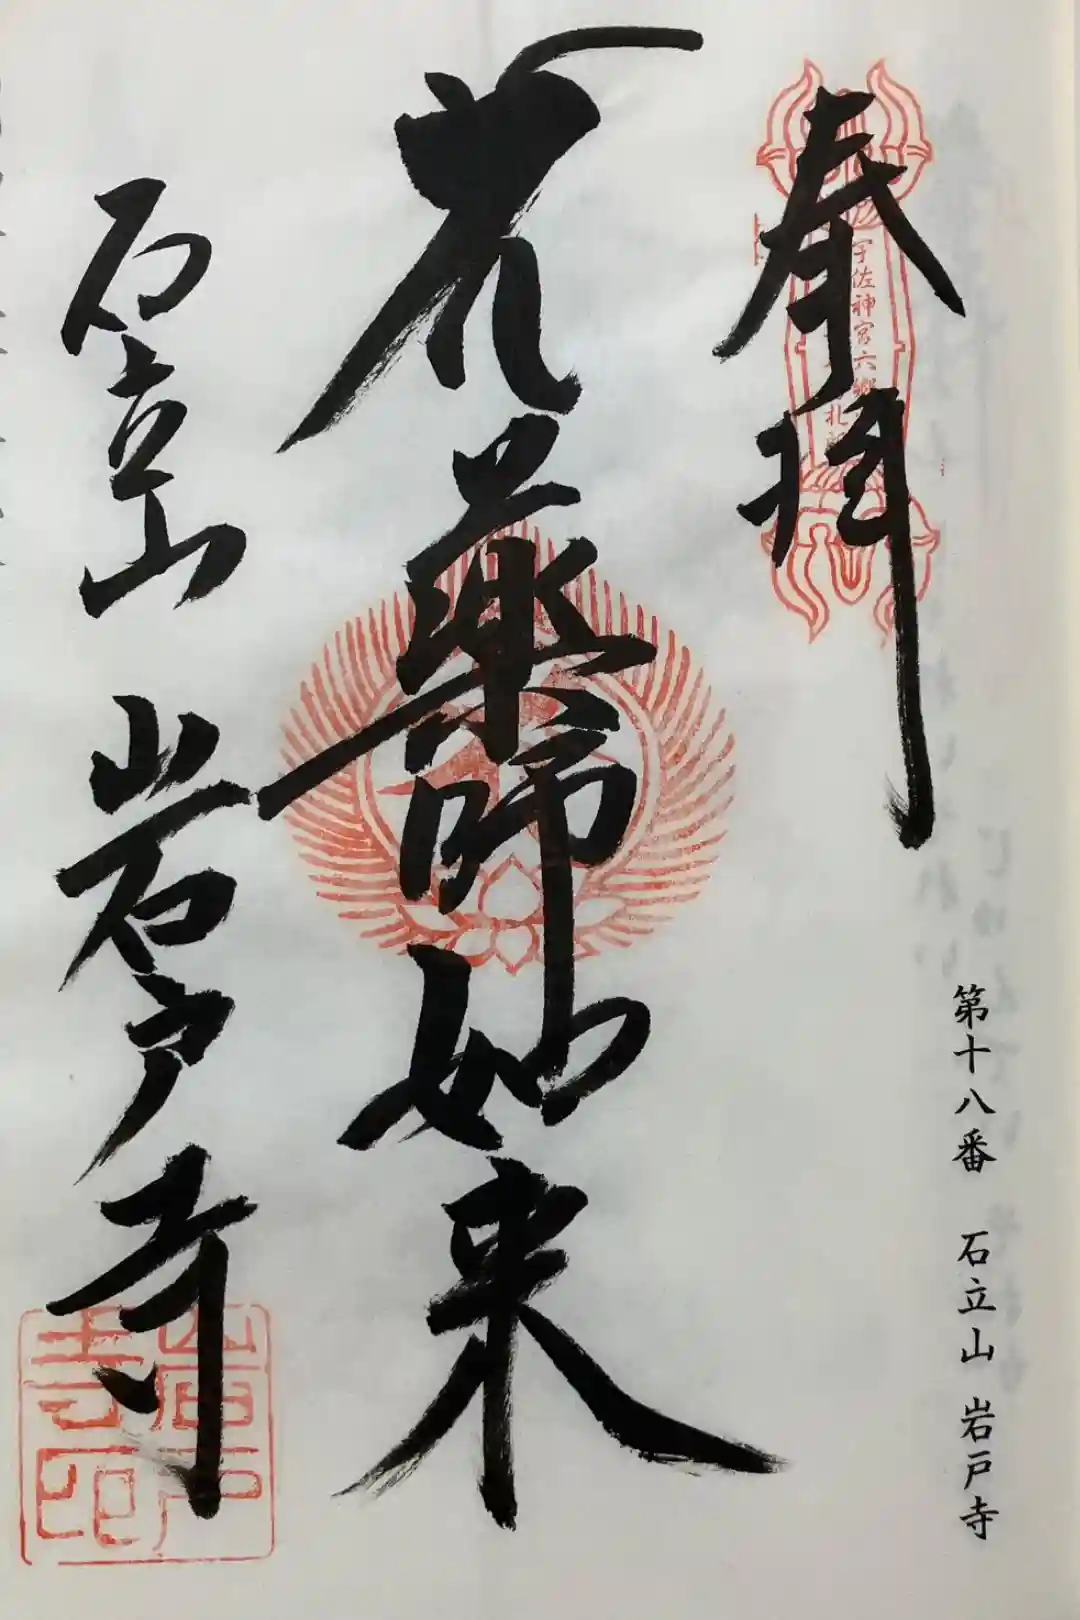 第十八番 石立山 岩戸寺
奉拝
宇佐神宮六郷
薬師如来
石立山 岩戸寺
岩戸
寺印